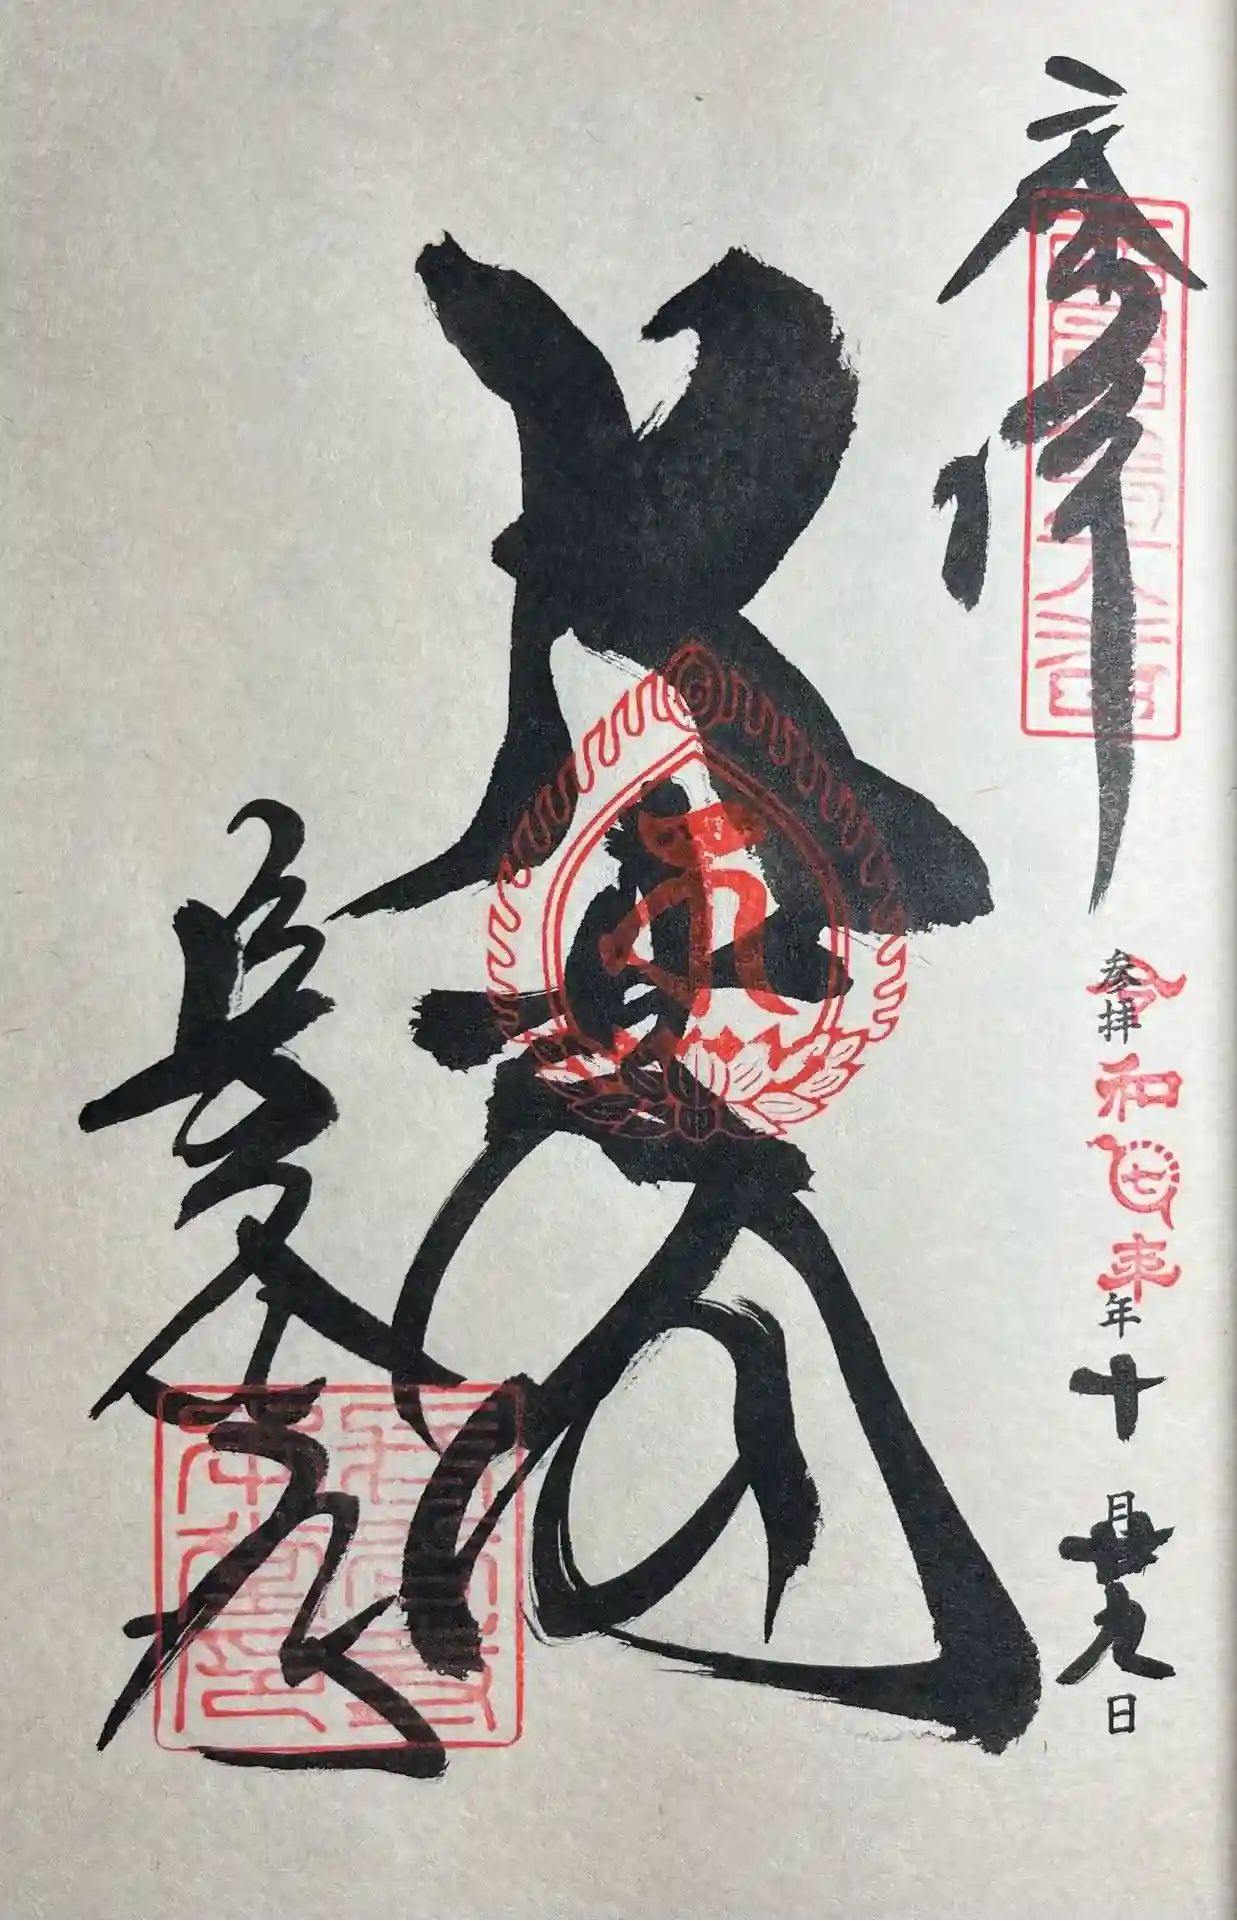 奉拝
参拝 令和七年 年 十 月 廿九 日
大悲閣
長谷寺